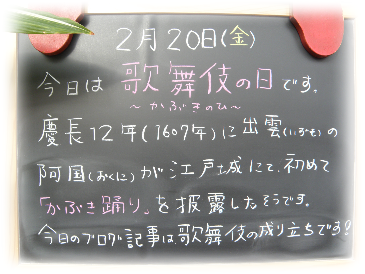 2月20日(金)
今日は 歌舞伎の日です。
～かぶきのひ～
慶長12年(1607年)に出雲(いずも)の
阿国(おくに)が江戸城にて、初めて
「かぶき踊り」を披露したそうです。
今日のブログ記事は、歌舞伎の成り立ちです?